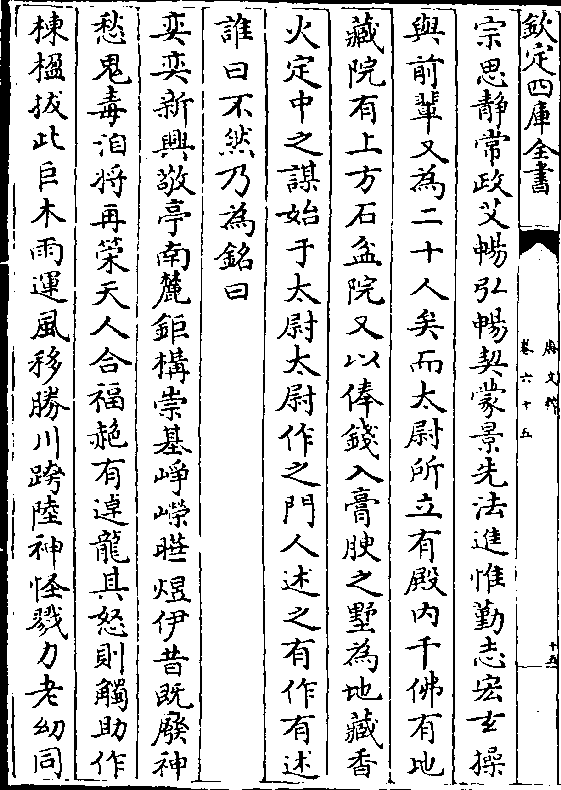 欽定四庫全書
唐文粹
卷六十五
十五
宗思靜常政艾暢弘暢契蒙景先法進惟勤志宏玄操
與前輩又為二十人矣而太尉所立有殿内千佛有地
藏院有上方石盆院又以俸錢入膏腴之墅為地藏香
火定中之謀始于太尉太尉作之門人述之有作有述
誰曰不然乃為銘曰
奕奕新興敬亭南麓鉅構崇基崢嶸曛煜伊昔既廢神
愁鬼毒洎將再榮天人合福赩有逴龍具怒則觸助作
棟楹拔此巨木雨運風移勝川跨陸神怪戮力老幼同